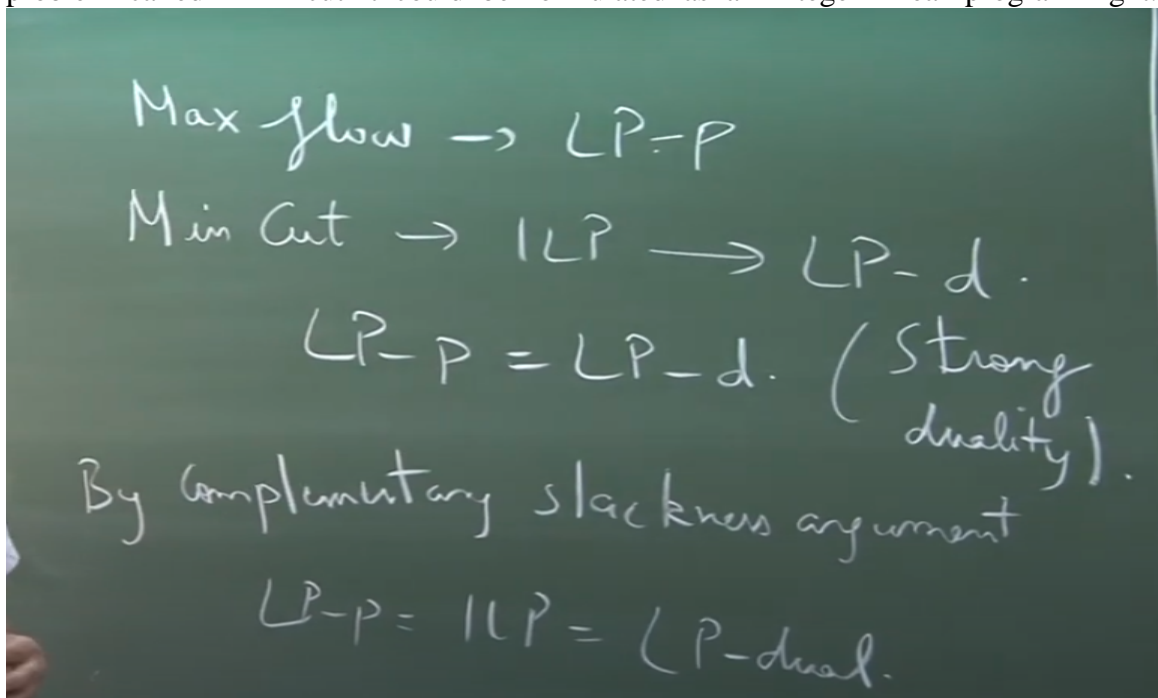 Max flow → LP-P
Min Cut → ILP → LP-d.
LP-P = LP-d. (Strong
duality).
By Complementary slackness argument
LP-P = ILP = LP-dual.